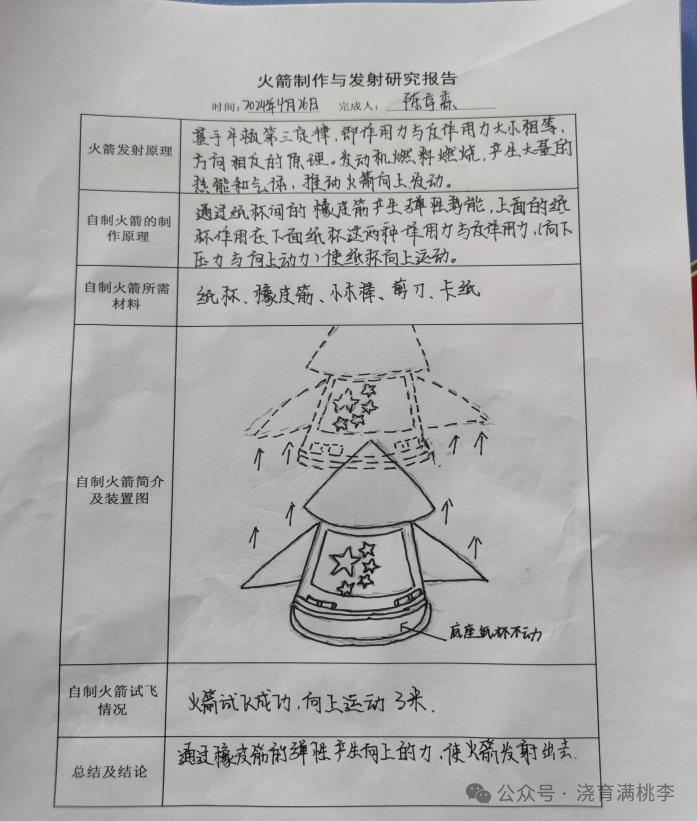 火箭制作与发射研究报告
时间：2024年4月26日 完成人：陈育森
火箭发射原理
基于牛顿第三定律，即作用力与反作用力大小相等，
方向相反的原理。发动机燃料燃烧，产生大量的
热能和气体，推动火箭向上发动。
自制火箭的制
作原理
通过纸杯间的橡皮筋产生弹性势能，上面的纸
杯作用在下面纸杯这两种作用力与反作用力，（向下
压力与向上动力）使纸杯向上运动。
自制火箭所需
材料
纸杯、橡皮筋、小木棒、剪刀、卡纸
自制火箭简介
及装置图
底座纸杯不动
自制火箭试飞
情况
火箭试飞成功，向上运动 3米.
总结及结论
通过橡皮筋的弹性产生向上的力，使火箭发射出去.
公众号·浇育满桃李